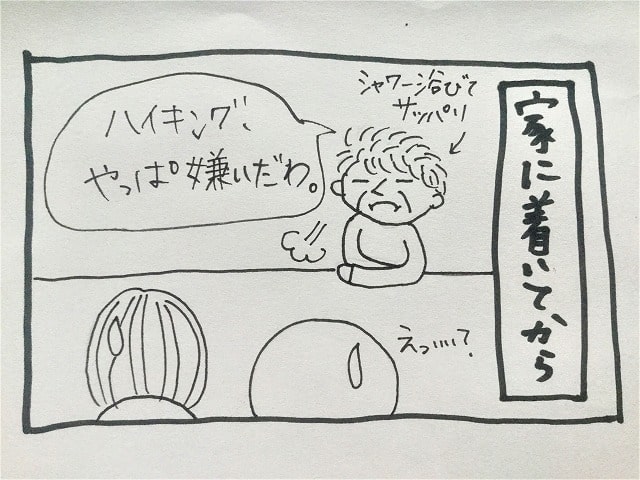 家に着いてから
シャワー浴びて
サッパリ
ハイキング、
やっぱ嫌いだわ。
えっ…？